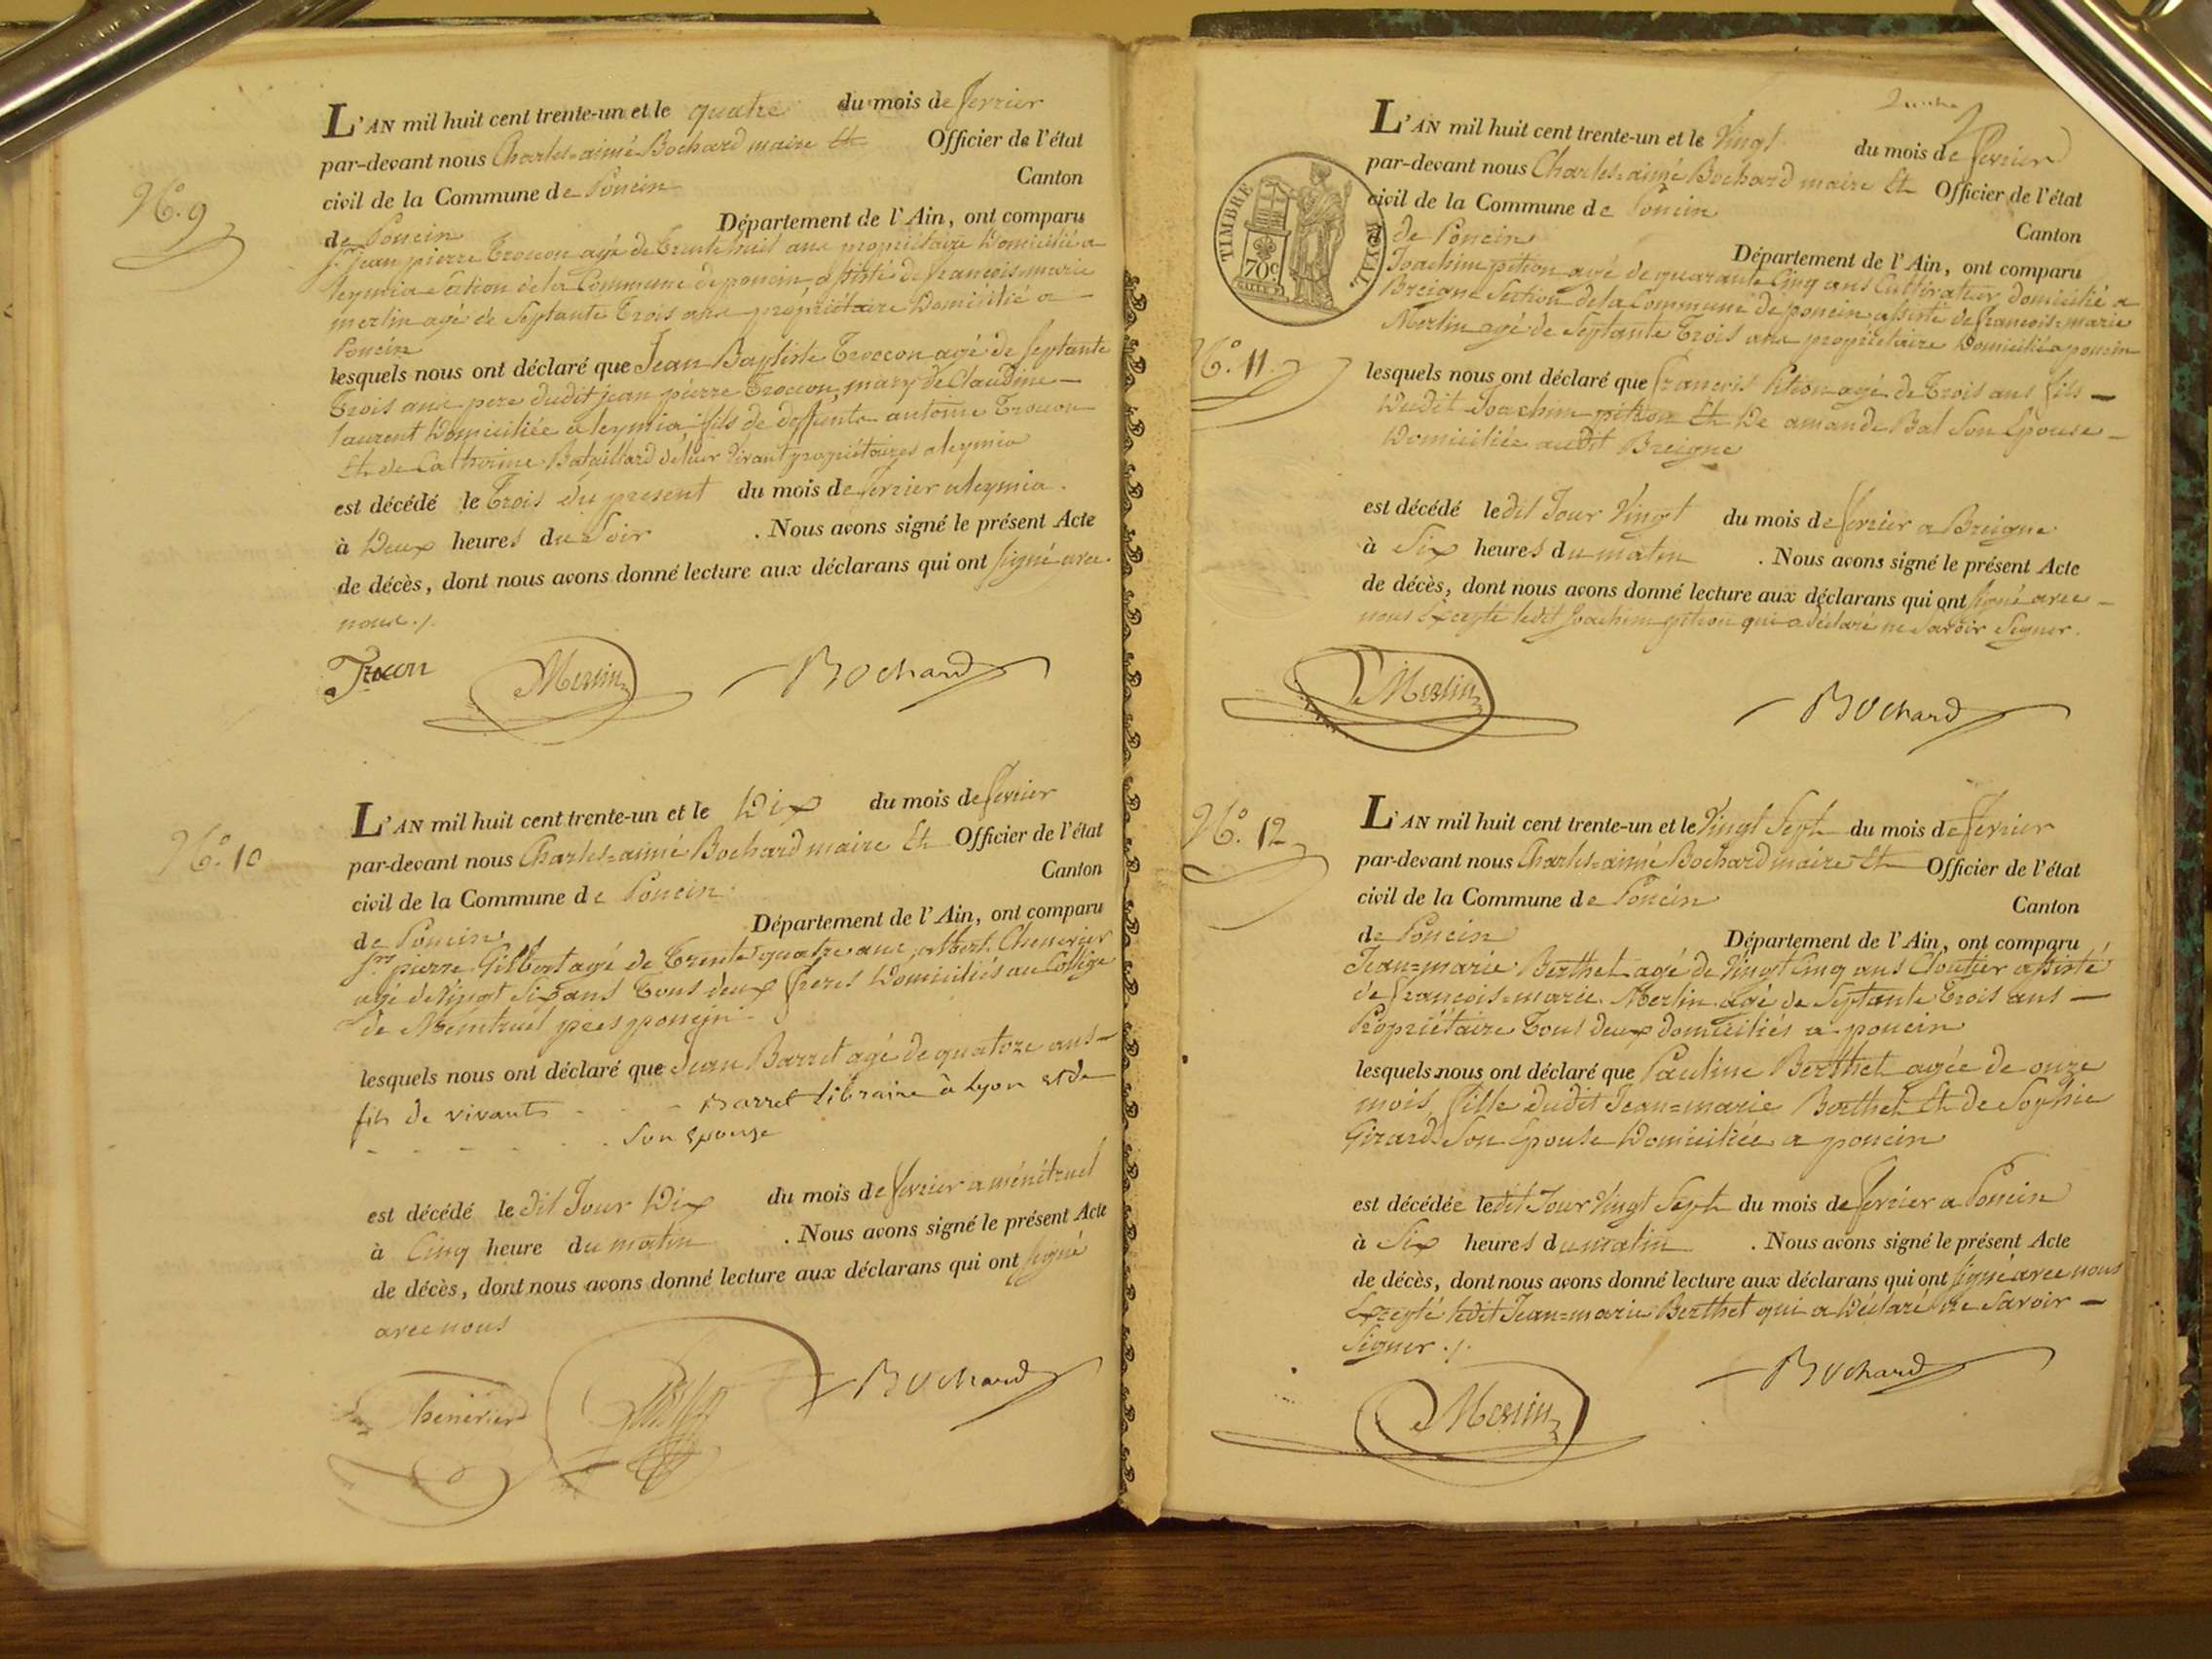 N.o 9
L'AN mil huit cent trente-un et le quatre du mois de fevrier
par-devant nous Charles=aimé Bochard maire Et Officier de l'état
civil de la Commune de Poncin Canton
de Poncin Département de l'Ain, ont comparu
Sr. jean pierre Troccon agé de Trente huit ans propriétaire Domicilié a
leymia Section de la Commune de poncin, assisté de francois marie
merlin agé de Septante Trois ans propriétaire Domicilié a
Poncin
lesquels nous ont déclaré que Jean Baptiste Troccon agé de Septante
Trois ans pere dudit jean pierre Troccon, mary de Claudine
laurent Domiciliée a leymia fils de deffunts antoine Troccon
Et de Catherine Bataillard de leur Vivant propriétaires a leymia
est décédé le Trois du present du mois de fevrier a leymia.
à Deux heures du Soir . Nous avons signé le présent Acte
de décès, dont nous avons donné lecture aux déclarans qui ont signé avec
nous ./.
Trocon Merlin Bochard
N.o 10
L'AN mil huit cent trente-un et le Dix du mois de fevrier
par-devant nous Charles=aimé Bochard maire Et Officier de l'état
civil de la Commune de Poncin Canton
de Poncin Département de l'Ain, ont comparu
Srs. pierre Gilbert agé de Trente quatre ans, albert Chenevier
agé de Vingt Six ans Tous deux freres Domiciliés au Collège
de Ménétruel près poncin
lesquels nous ont déclaré que Jean Barret agé de quatorze ans
fils de vivants - - - Barret Libraire à Lyon et de
- - - - - - Son Epouse
est décédé le dit Jour Dix du mois de fevrier a ménétruel
à Cinq heure du matin . Nous avons signé le présent Acte
de décès, dont nous avons donné lecture aux déclarans qui ont signé
avec nous
Chenevier Bochard
L'AN mil huit cent trente-un et le Vingt du mois de fevrier
par-devant nous Charles=aimé Bochard maire Et Officier de l'état
civil de la Commune de Poncin Canton
de Poncin Département de l'Ain, ont comparu
TIMBRE ROYAL
70c
N.o 11
Joachim pition agé de quarante Cinq ans Cultivateur domicilié a
Breigne Section de la Commune de poncin assisté de francois=marie
Merlin agé de Septante Trois ans propriétaire Domicilié a poncin
lesquels nous ont déclaré que francois Pition agé de Trois ans fils
Dudit Joachim pition Et De amande Bal Son Epouse
Domiciliée audit Breigne
est décédé le dit Jour Vingt du mois de fevrier a Breigne
à Six heures du matin . Nous avons signé le présent Acte
de décès, dont nous avons donné lecture aux déclarans qui ont signé avec
nous Excepté ledit Joachim pition qui a déclaré ne Savoir Signer.
Merlin Bochard
N.o 12
L'AN mil huit cent trente-un et le Vingt Sept du mois de fevrier
par-devant nous Charles=aimé Bochard maire Et Officier de l'état
civil de la Commune de Poncin Canton
de Poncin Département de l'Ain, ont comparu
Jean=marie Berthet agé de Vingt Cinq ans Cloutier assisté
de francois=marie Merlin agé de Septante Trois ans
Propriétaire Tous deux domiciliés a poncin
lesquels nous ont déclaré que Pauline Berthet agée de onze
mois fille dudit Jean=marie Berthet Et de Sophie
Girard Son Epouse Domiciliée a poncin
est décédée le dit Jour Vingt Sept du mois de fevrier a Poncin
à Six heures du matin . Nous avons signé le présent Acte
de décès, dont nous avons donné lecture aux déclarans qui ont signé avec nous
Excepté ledit Jean=marie Berthet qui a Déclaré ne Savoir
Signer ./.
Merlin Bochard